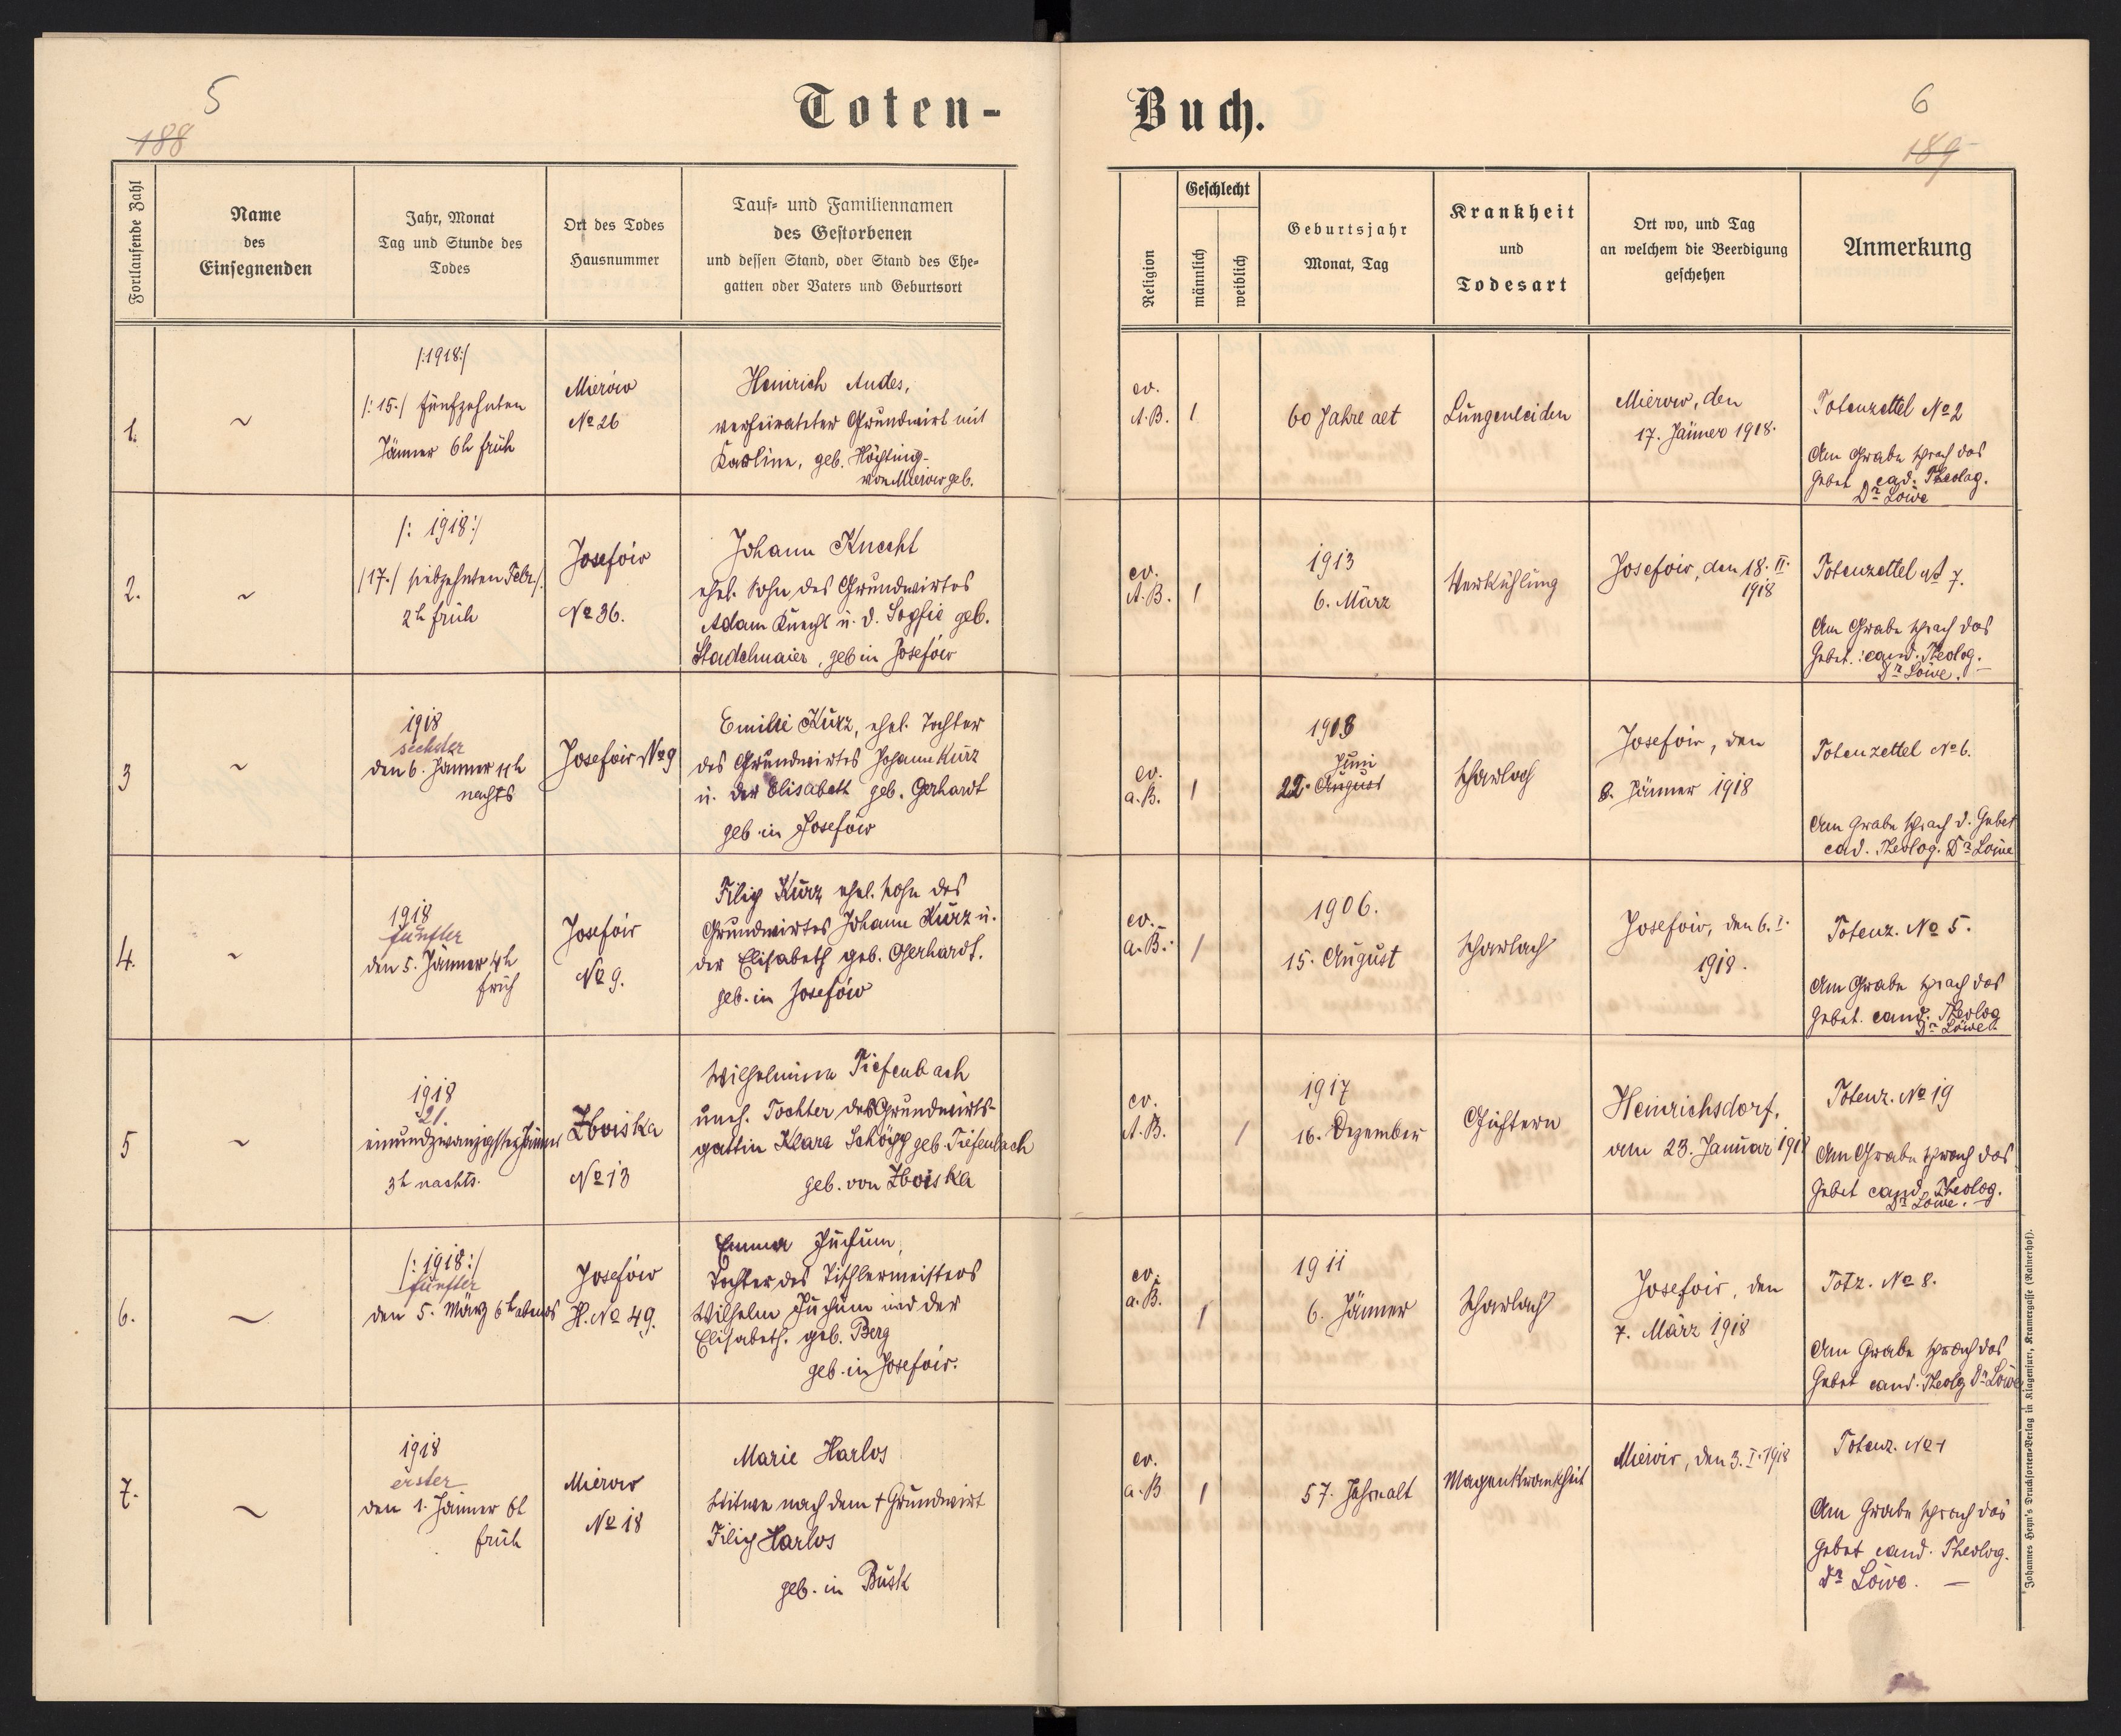 5
188
Toten-
Fortlaufende Zahl
Name
des
Einsegnenden
Jahr, Monat
Tag und Stunde des
Todes
Ort des Todes
Hausnummer
Tauf- und Familiennamen
des Gestorbenen
und dessen Stand, oder Stand des Ehe-
gatten oder Vaters und Geburtsort
1.
~
/:1918:/
/:15./ fünfzehnten
Jänner 6h früh
Mierów
No 26
Heinrich Andes,
verheirateter Grundwirt mit
Karline, geb.
von Mierów geb.
2.
~
/: 1918:/
/17./ siebzehnten Febr./.
2h früh
Josefów
No 36.
Johann Knecht
ehel. Sohn des Grundwirtes
Adam Knecht u. d. Sophie geb.
Stadelmaier, geb in Josefów
3
~
1918
sechster
den 6. Jänner 11h
nachts
Josefów No 9
Emilie Kurz, ehel. Tochter
des Grundwirtes Johann Kurz
u. der Elisabeth geb. Gerhardt
geb. in Josefów
4.
~
1918
fünfter
den 5. Jänner 4h
früh
Josefów
No 9.
Filip Kurz ehel. Sohn des
Grundwirtes Johann Kurz u.
der Elisabeth geb. Gerhardt.
geb. in Josefów
5
~
1918
21.
einundzwanzigster Jänner
3h nachts.
Zboiska
No 13
Wilhelmine Tiefenbach
uneh. Tochter des Grundwirts-
gattin Klara Schöpp geb. Tiefenbach
geb. von Zboiska
6.
~
/: 1918:/
fünfter
den 5. März 6h abends
Josefów
H. No 49.
Emma Juchum,
Tochter des Tischlermeisters
Wilhelm Juchum und der
Elisabeth. geb. Berg
geb. in Josefów.
7.
~
1918
erster
den 1. Jänner 6h
früh
Mierow
No 18
Marie Harlos
Witwe nach dem + Grundwirt
Filip Harlos
geb. in Busk
6
189
Buch.
Religion
Geschlecht
männlich
weiblich
Geburtsjahr
Monat, Tag
Krankheit
und
Todesart
Ort wo, und Tag
an welchem die Beerdigung
geschehen
Anmerkung
ev.
A.B.
/
60 Jahre alt
Lungenleiden
Mierow, den
17. Jänner 1918.
Totenzettel No 2
Am Grabe sprach das
Gebet cad. Theolog.
Dr Löwe
ev.
A.B.
/
1913
6. März
Verkühlung
Josefów, den 18. II.
1918
Totenzettel No 7.
Am Grabe sprach das
Gebet. cand. Theolog.
Dr Löwe.
ev.
a.B.
/
1908
Juni
22. August
Scharlach
Josefów, den
8. Jänner 1918
Totenzettel No 6.
Am Grabe sprach d. Gebet
cad. Theolog. Dr Löwe
ev.
a.B.
/
1906.
15. August
Scharlach
Josefów, den 6. I.
1918.
Totenz. No 5.
Am Grabe sprach das
Gebet. cand. Theolog
Dr Löwe.
ev.
A.B.
/
1917
16. Dezember
Heinrichsdorf,
am 23. Januar 1918
Totenz. No 19
Am Grabe sprach das
Gebet cand. Theolog.
Dr Löwe.
ev.
a.B.
/
1911
6. Jänner
Scharlach
Josefów, den
7. März 1918
Totz. No 8.
Am Grabe sprach das
Gebet cand. Theolg Dr Löwe
ev.
a.B
/
57. Jahre alt
Magenkrankheit
Mierów, den 3. I. 1918
Totenz. No 1
Am Grabe sprach das
Gebet cand. Theolog.
Dr Löwe. —
Johannes Heyn's Drucksorten-Verlag in Klagenfurt, Kramergasse (Rainerhof).